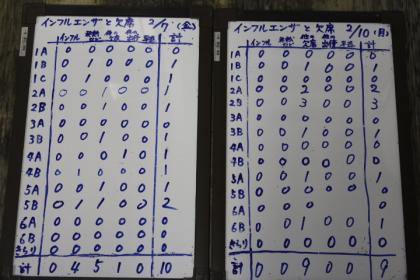 インフルエンザと欠席 2/7(金)
インフル 発熱 他の欠席 他の出停 早退 計
1A 0 0 0 0 0 0
1B 0 1 0 0 0 1
1C 0 0 1 0 0 1
2A 0 0 1 0 0 1
2B 0 0 1 0 0 1
3A 0 0 0 0 0 0
3B 0 0 1 0 0 1
4A 0 0 0 1 0 1
4B 0 1 0 0 0 1
5A 0 1 0 0 0 1
5B 0 1 1 0 0 2
6A 0 0 0 0 0 0
6B 0 0 0 0 0 0
きらり 0 0 0 0 0 0
計 0 4 5 1 0 10
インフルエンザと欠席 2/10(月)
インフル 発熱 他の欠席 他の出停 早退 計
1A 0 0 0 0 0 0
1B 0 0 1 0 0 1
1C 0 0 0 0 0 0
2A 0 0 2 0 0 2
2B 0 0 3 0 0 3
3A 0 0 0 0 0 0
3B 0 0 1 0 0 1
4A 0 0 0 0 0 0
4B 0 0 0 0 0 0
5A 0 0 1 0 0 1
5B 0 0 0 0 0 0
6A 0 0 0
6B 0 0 1 0 0 1
きらり 0 0 0 0 0 0
計 0 0 9 0 0 9